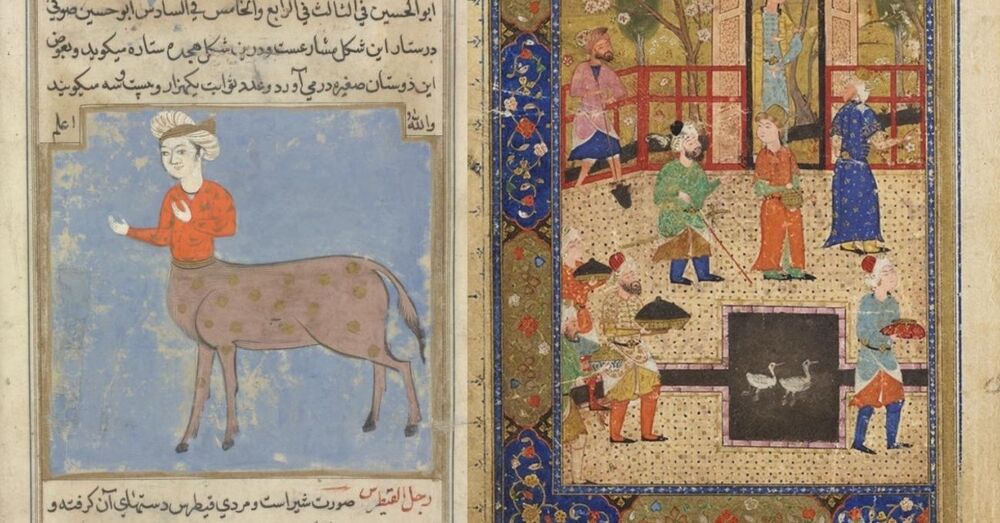 ابوالحسین فی الثالث فی الرابع والخامس فی السادس ابو حسین صوفی
این شکل و درین شکل هجده ستاره میکوید و بعض
این دوستان صغیره در می آورد و عدد ثوابت یکهزار و بیست و سه میکویند
والله اعلم
رجل القیطرس صورت شیر است و مردی قیطرس دستهای آن کرفته و